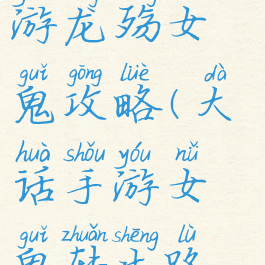 游龙殇女
guǐ gōng lüè dà
鬼攻略(大
huà shǒu yóu nǚ
话手游女
guǐ zhuǎn shēng lù
鬼转生路